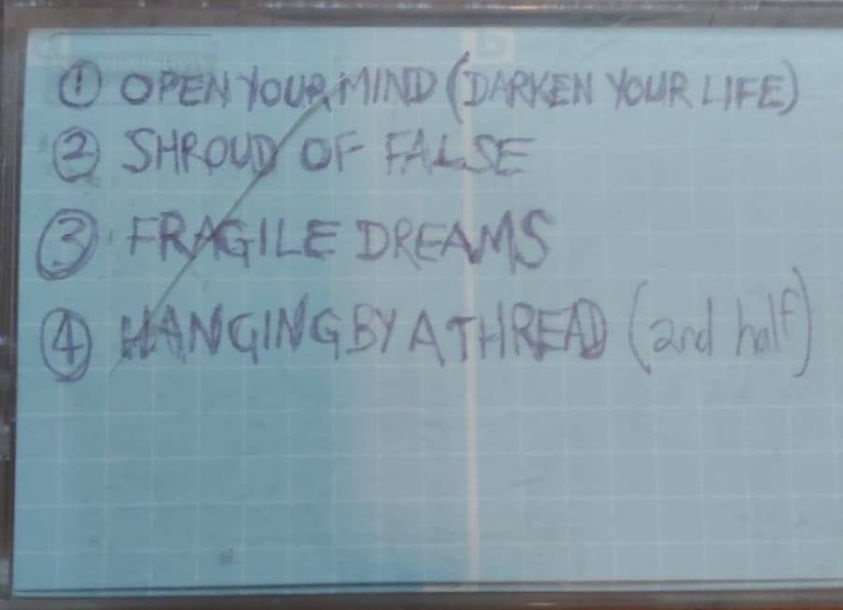 ① OPEN YOUR MIND (DARKEN YOUR LIFE)
② SHROUD OF FALSE
③ FRAGILE DREAMS
④ HANGING BY A THREAD (and half)